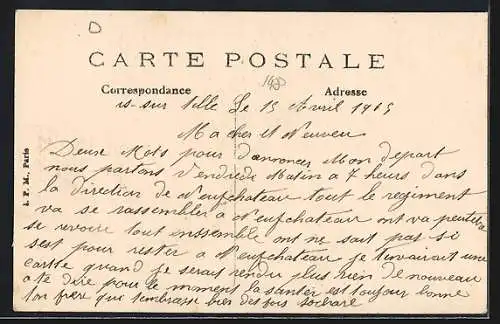 CARTE POSTALE
Correspondance
Adresse
is-sur tille Le 15 Avril 1915
Ma cher et Neuveu
Deuse Mots pour d'anoncer Mon depart
nous partons Vendredi Matin a 7 heurs dans
la direction de Neufchateau tout le regiment
va se rassembler a Neufchateau ont va peutetre
se revoire tout enssemble ont ne sait pas si
sest pour rester a Neufchateau je t'invairait une
cartte quand je serais rendu plus rien de nouveau
a te dire pour le moment la santer est toujour bonne
ton frere qui t'embrasse bien des fois
I. P. M., Paris